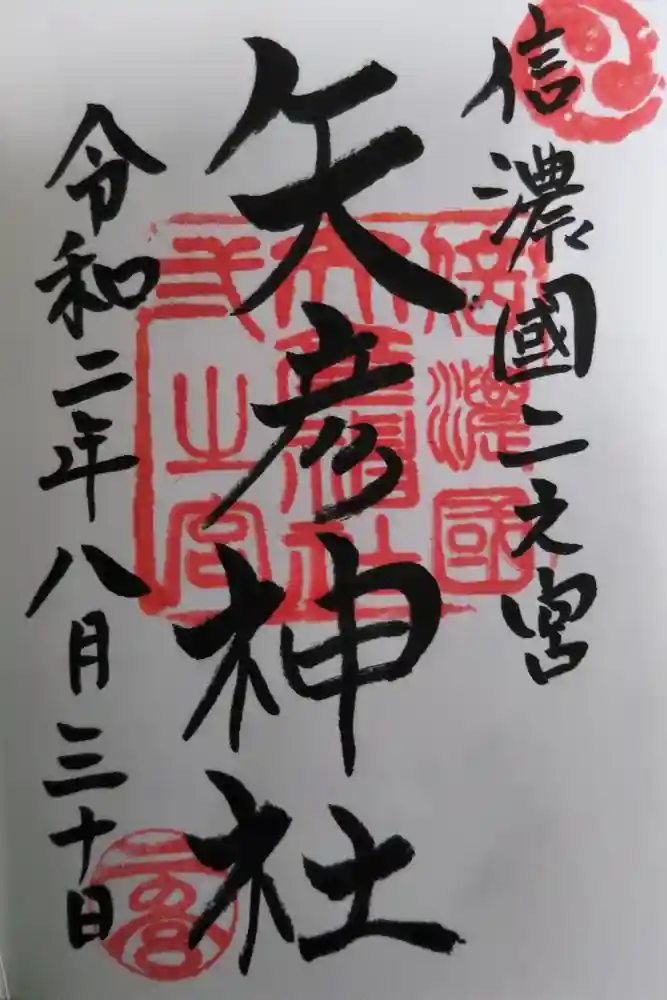 信濃國二之宮
矢彦神社
令和二年八月三十日
信濃國
矢彦神社
弐之宮
二宮